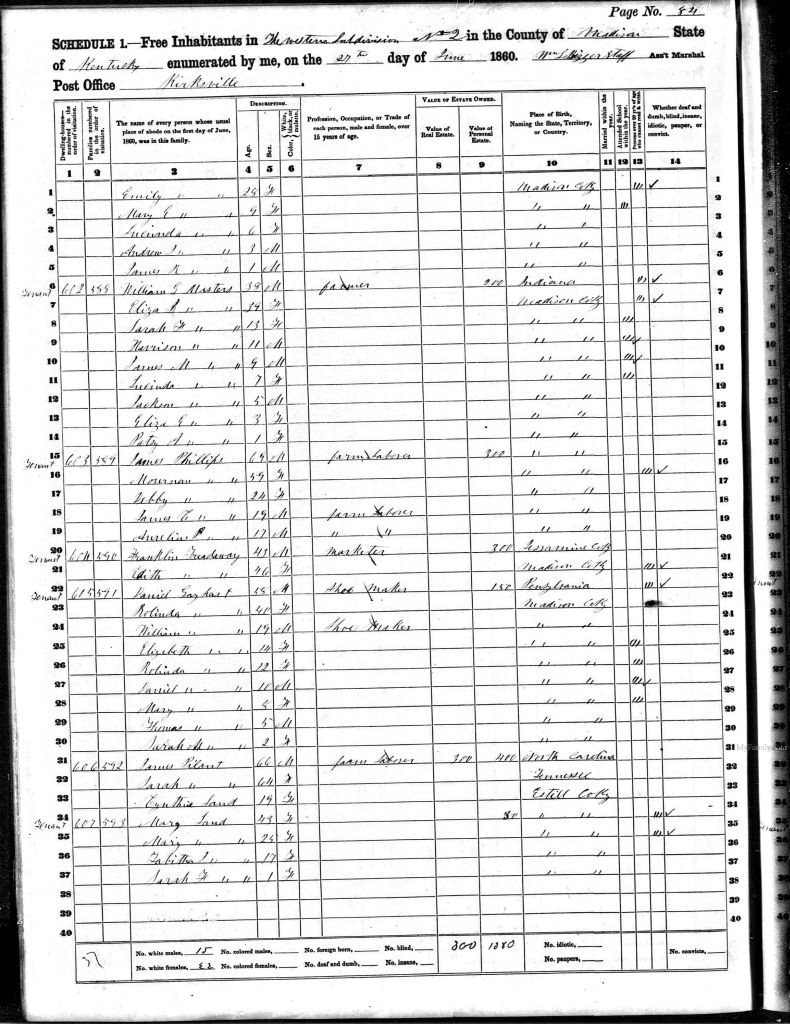 Page No. 84
SCHEDULE 1.—Free Inhabitants in The Western Subdivision No 2 in the County of Madison State
of Kentucky enumerated by me, on the 27th day of June 1860. Ass't Marshal
Post Office Kirksville
DESCRIPTION. VALUE OF ESTATE OWNED.
Dwelling-houses—numbered in the order of visitation. Families numbered in the order of visitation. The name of every person whose usual place of abode on the first day of June, 1860, was in this family. Age. Sex. Color, White, black, or mulatto. Profession, Occupation, or Trade of each person, male and female, over 15 years of age. Value of Real Estate. Value of Personal Estate. Place of Birth, Naming the State, Territory, or Country. Married within the year. Attended School within the year. Persons over 20 y'rs of age who cannot read & write. Whether deaf and dumb, blind, insane, idiotic, pauper, or convict.
1 2 3 4 5 6 7 8 9 10 11 12 13 14
1 Emily " " 28 F Madison Co Ky 1
2 Mary E " " 9 F " " 2
3 Lucinda " " 6 F " " 3
4 Andrew J " " 3 M " " 4
5 James R " " 1 M " " 5
6 Tenant 602 588 William G Masters 38 M farmer 200 Indiana 6
7 Eliza A " " 39 F Madison Co Ky 7
8 Sarah F " " 13 F " " 8
9 Harrison " " 11 M " " 9
10 James M " " 9 M " " 10
11 Lucinda " " 7 F " " 11
12 Jackson " " 5 M " " 12
13 Eliza E " " 3 F " " 13
14 Patsy A " " 1 F " " 14
15 Tenant 603 589 James Phillips 69 M farm Laborer 300 " " 15
16 " " 59 F " " 16
17 " " 24 F " " 17
18 James " " 19 M farm Laborer " " 18
19 " " 17 M " " " " 19
20 Tenant 604 590 Franklin Treadaway 43 M marketer 300 Jessamine Co Ky 20
21 Edith " " 46 F Madison Co Ky 21
22 Tenant 605 591 Daniel 58 M Shoe Maker 150 Pensylvania 22
23 Rolinda " " 40 F Madison Co Ky 23
24 William " " 19 M Shoe Maker " " 24
25 Elizabeth " " 14 F " " 25
26 Rolinda " " 12 F " " 26
27 Daniel " " 10 M " " 27
28 Mary " " 8 F " " 28
29 Thomas " " 5 M " " 29
30 Sarah M " " 2 F " " 30
31 606 592 James Pilant 66 M farm Laborer 300 400 North Carolina 31
32 Sarah " " 64 F Tennessee 32
33 Cynthia Land 19 F Estill Co Ky 33
34 Tenant 607 593 Mary Land 43 F 30 " " 34
35 Mary " " 25 F " " 35
36 Tabitha J " " 17 F " " 36
37 Sarah F " " 1 F " " 37
38 38
39 39
40 40
37 No. white males, 15 No. colored males, No. foreign born, No. blind, 300 1380 No. idiotic, No. convicts,
No. white females, 22 No. colored females, No. deaf and dumb, No. insane, No. paupers,